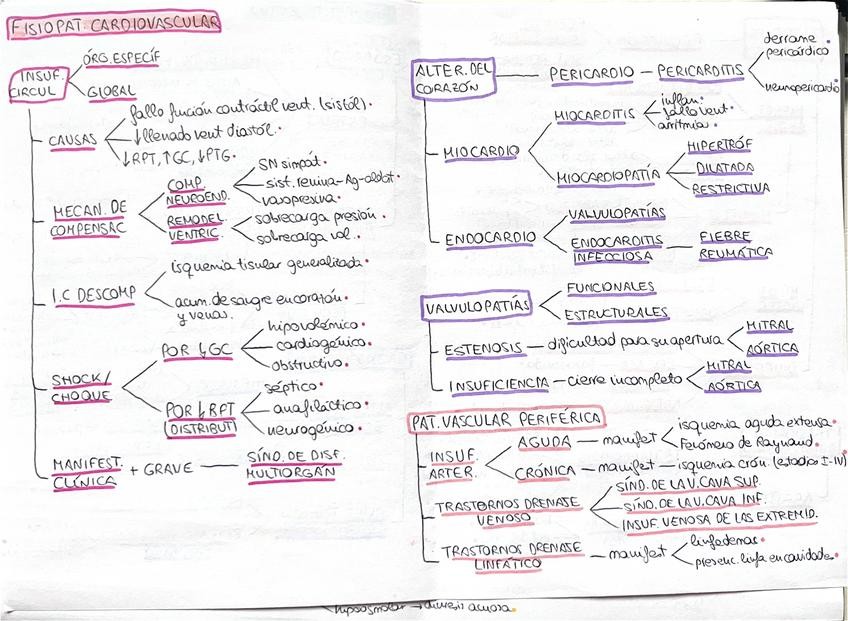 FISIOPAT. CARDIOVASCULAR
INSUF. CIRCUL
ÓRG. ESPECÍF
GLOBAL
CAUSAS
fallo función contráctil vent. (sistól).
↓llenado vent diastól.
↓RPT, ↑GC, ↓PTG.
MECAN. DE COMPENSAC
COMP. NEUROEND.
SN simpát.
sist. renina-Ag-aldost.
vasopresina
REMODEL. VENTRIC.
sobrecarga presión
sobrecarga vol.
I.C DESCOMP
isquemia tisular generalizada
acum. de sangre en corazón y venas.
SHOCK/ CHOQUE
POR ↓GC
hipovolémico
cardiogénico
obstructivo
POR ↓RPT (DISTRIBUT)
séptico
anafiláctico
neurogénico
MANIFEST. CLÍNICA + GRAVE
SÍND. DE DISF. MULTIORGÁN
ALTER. DEL CORAZÓN
PERICARDIO – PERICARDITIS
derrame pericárdico
neumopericardio
MIOCARDIO
MIOCARDITIS
inflam.
fallo vent
arritmia
MIOCARDIOPATÍA
HIPERTRÓF
DILATADA
RESTRICTIVA
ENDOCARDIO
VALVULOPATÍAS
ENDOCARDITIS INFECCIOSA – FIEBRE REUMÁTICA
VALVULOPATÍAS
FUNCIONALES
ESTRUCTURALES
ESTENOSIS – dificultad para su apertura
MITRAL
AÓRTICA
INSUFICIENCIA – cierre incompleto
MITRAL
AÓRTICA
PAT. VASCULAR PERIFÉRICA
INSUF. ARTER.
AGUDA – manifest
isquemia aguda extensa
Fenómeno de Raynaud.
CRÓNICA – manifest – isquemia crón. (estadios I-IV)
TRASTORNOS DRENAJE VENOSO
SÍND. DE LA V. CAVA SUP.
SÍND. DE LA V. CAVA INF.
INSUF. VENOSA DE LAS EXTREMID.
TRASTORNOS DRENAJE LINFÁTICO – manifest
linfedemas
presenc. linfa en cavidades
hipoosmolar → diuresis acuosa